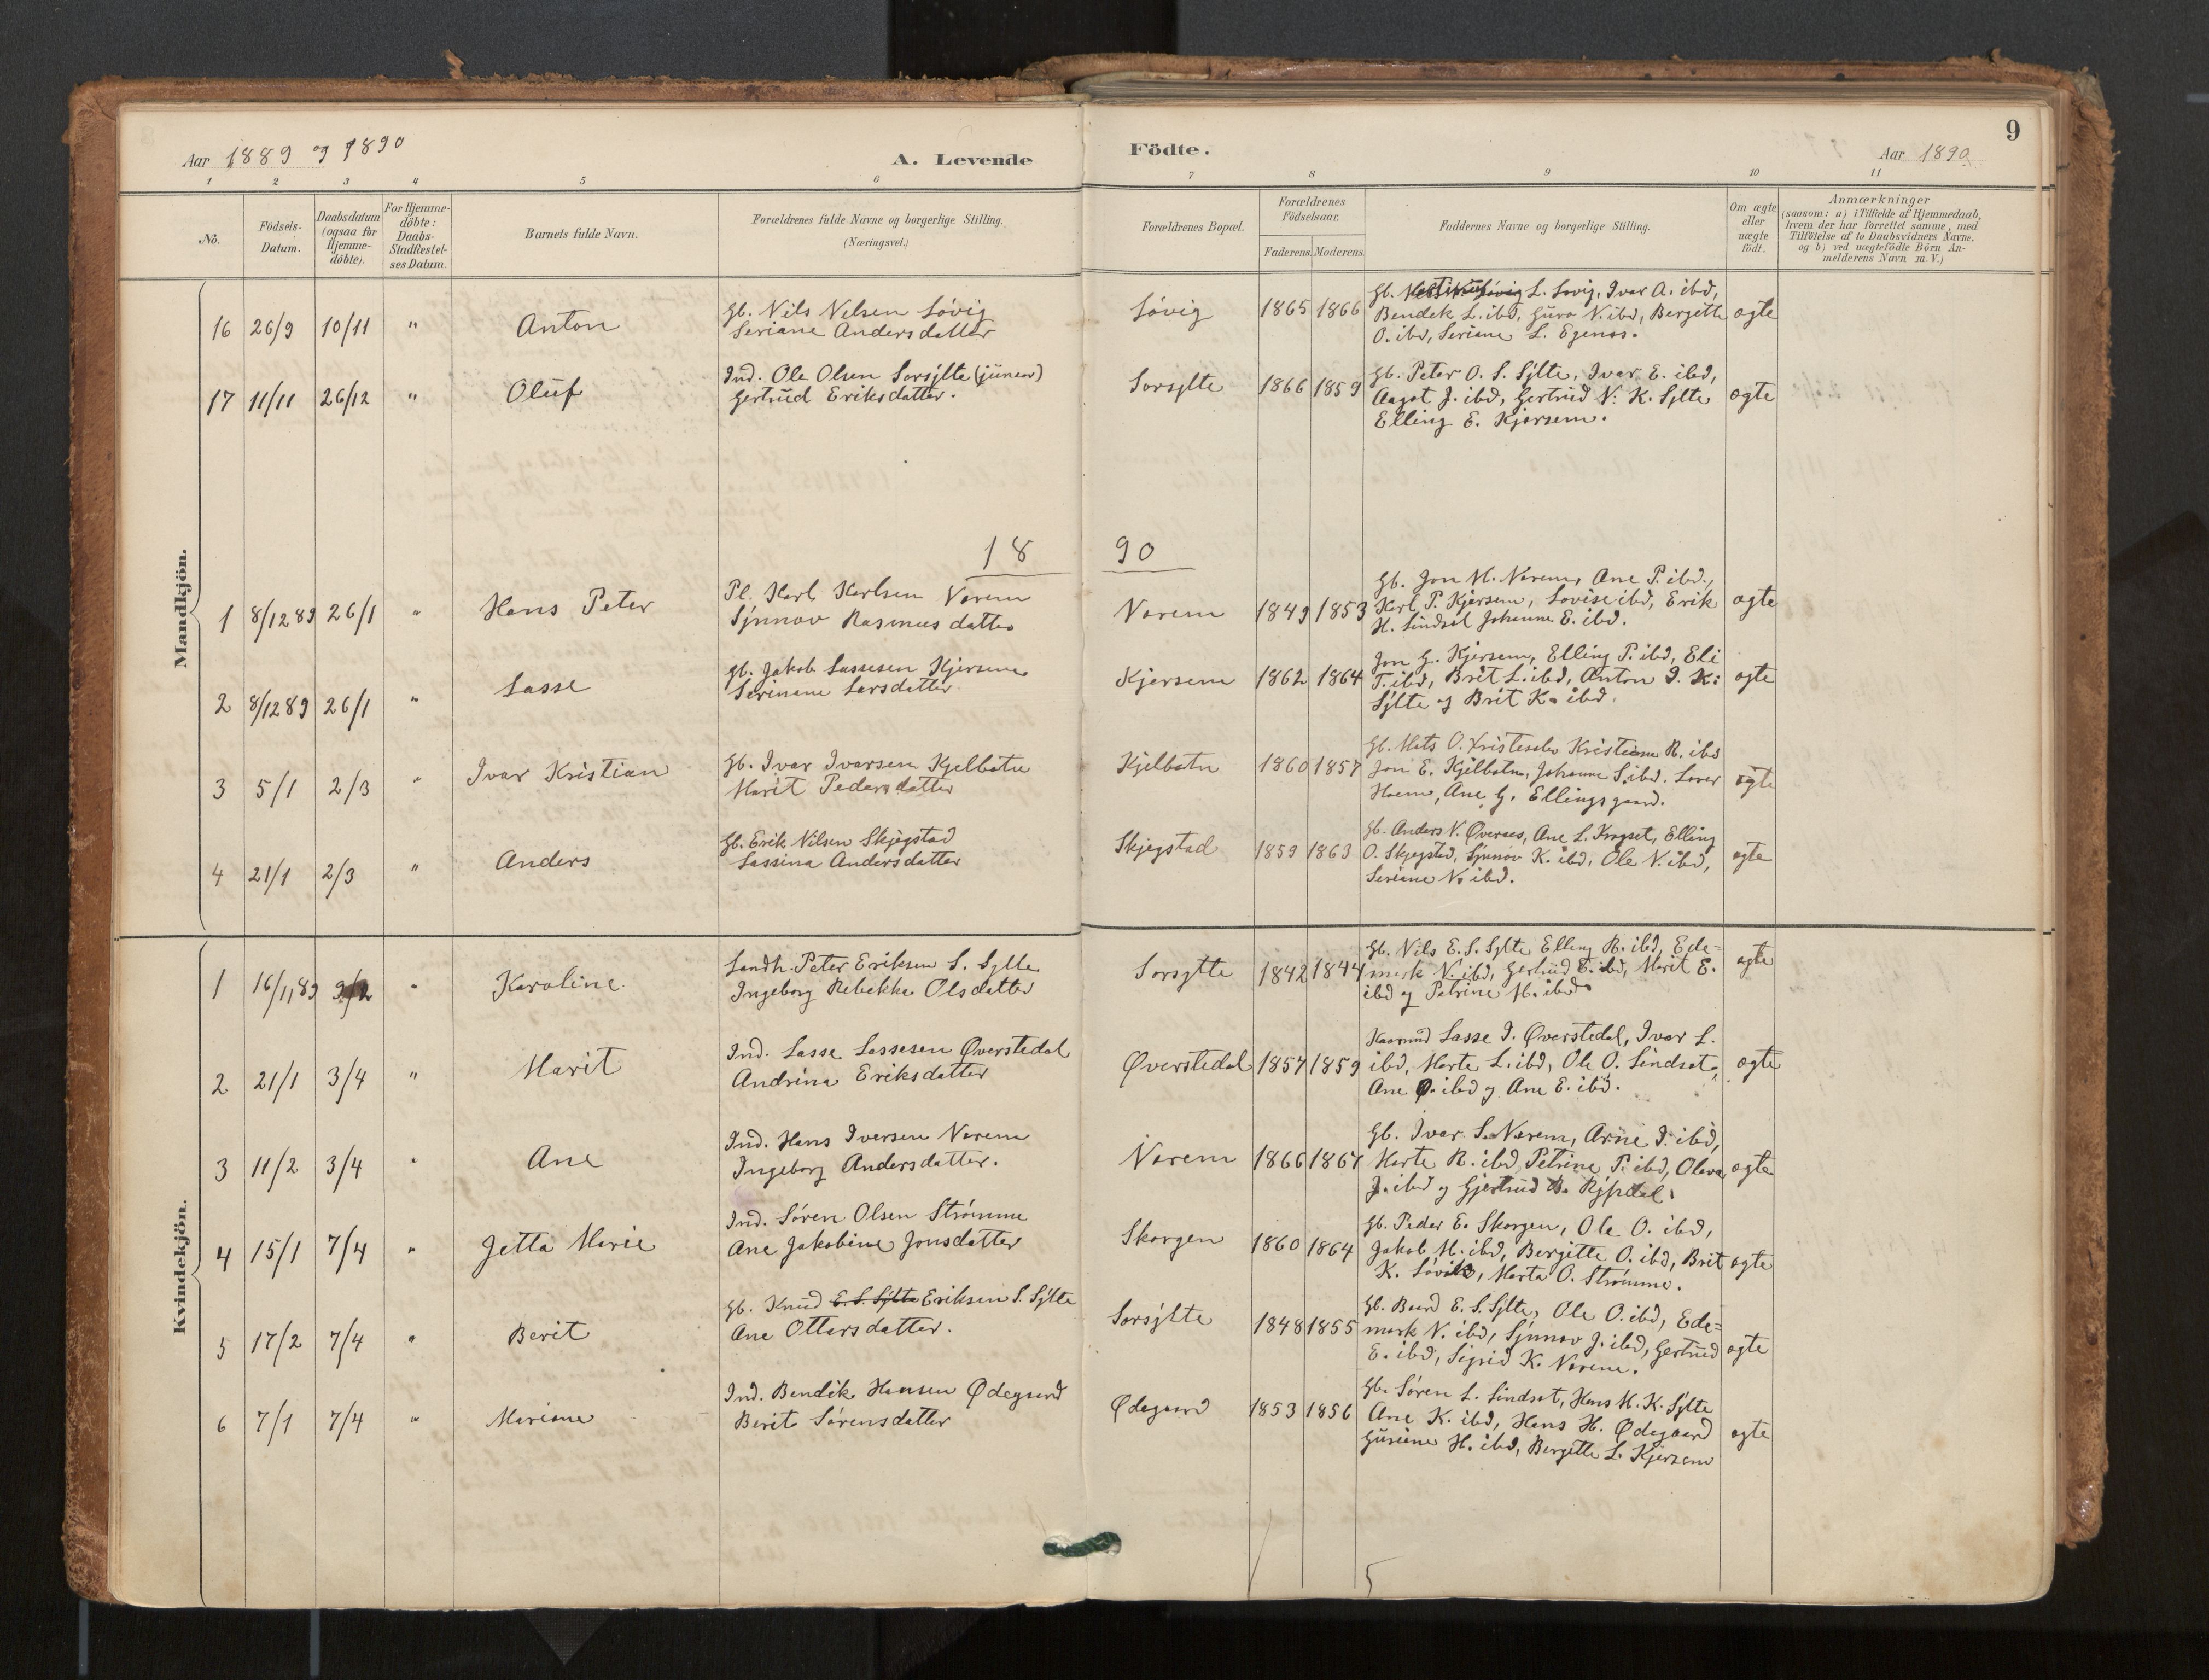 9
Aar 1889 og 1890
A. Levende
Födte.
Aar 1890
1 2 3 4 5 6 7 8 9 10 11
No.
Födsels-
Datum.
Daabsdatum
(ogsaa for
Hjemme-
döbte).
For Hjemme-
döbte:
Daabs-
Stadfæstel-
ses Datum.
Barnets fulde Navn.
Forældrenes fulde Navne og borgerlige Stilling.
(Næringsvei.)
Forældrenes Bopæl.
Forældrenes
Födselsaar.
Faderens. Moderens.
Faddernes Navne og borgerlige Stilling.
Om ægte
eller
uægte
födt.
Anmærkninger
(saasom: a) i Tilfælde af Hjemmedaab,
hvem der har forrettet samme, med
Tilföielse af to Daabsvidners Navne,
og b) ved uægtefödte Börn An-
melderens Navn m. V.)
Mandkjön.
16 26/9 10/11 " Anton
Gb. Nils Nilsen Løvig
Seriane Andersdatter
Løvig 1865 1866
Gb. L. Løvig, Ivar A. ibd,
Bendek L. ibd, Guro N. ibd, Bergitte
O. ibd, Seriane L. Egenæs.
ægte
17 11/11 26/12 " Oluf
Ind. Ole Olsen Sorsylte (junior)
Gertrud Eriksdatter.
Sorsylte 1866 1859
Gb. Peter O. S. Sylte, Ivar E. ibd,
Aagot J. ibd, Gertrud N. K. Sylte
Elling E. Kjærsem.
ægte
1890
1 8/12 89 26/1 " Hans Peter
Pl. Karl Karlsen Værem
Synnøv Rasmusdatter
Værem 1849 1853
Gb. Jon M. Nærem, Ane P. ibd.,
Karl P. Kjersem, Lovise ibd, Erik
H. Lindset Johanne E. ibd.
ægte
2 8/12 89 26/1 " Lasse
Gb. Jakob Lassesen Kjersem
Serianne Larsdatter
Kjersem 1862 1864
Jon G. Kjersem, Elling P. ibd, Eli
T. ibd, Brit L. ibd, Anton I. K:
Sylte og Brit K. ibd.
ægte
3 5/1 2/3 " Ivar Kristian
Gb. Ivar Ivarsen Kjelbotn
Marit Pedersdatter
Kjelbotn 1860 1857
Gb. Mats O. Kristiane R. ibd
Jon E. Kjelbotn, Johanne S. ibd.
Ane G. Ellingsgaard.
ægte
4 21/1 2/3 " Anders
Gb. Erik Nilsen Skjegstad
Lassina Andersdatter
Skjegstad 1859 1863
Gb. Anders N. Øveraas, Ane L. Elling
O. Skjegstad, Synnøv K. ibd, Ole N. ibd,
Seriane N. ibd.
ægte
Kvindekjön.
1 16/11 89 9/2 " Karoline
Landh. Peter Eriksen S. Sylte
Ingeborg Rebekka Olsdatter
Sorsylte 1842 1844
Gb. Nils E. S. Sylte Elling R. ibd, Ede=
mark N. ibd, Gertrud E. ibd, Marit E.
ibd og Petrine M. ibd.
ægte
2 21/1 3/4 " Marit
Ind. Lasse Lassesen Øverstedal
Andrina Eriksdatter
Øverstedal 1857 1859
Lasse I. Øverstedal, Ivar L.
ibd, Marte L. ibd, Ole O. Lindset,
Ane O. ibd og Ane E. ibd.
ægte
3 11/2 3/4 " Ane
Ind. Hans Iversen Nærem
Ingeborg Andersdatter.
Nærem 1866 1867
Gb. Ivar S. Nærem, Arne I. ibd,
Marte R. ibd, Petrine P. ibd, Olava
J. ibd og Gjertrud B. Rypdal.
ægte
4 15/1 7/4 " Jetta Marie
Ind. Søren Olsen Strømme
Ane Jakobine Jonsdatter
Skorgen 1860 1864
Gb. Peder E. Skorgen, Ole O. ibd,
Jakob M. ibd, Bergitte O. ibd, Brit
K. Løvik, Marta O. Strømme.
ægte
5 17/2 7/4 " Berit
Gb. Knud E. S. Sylte Eriksen S. Sylte
Ane Ottarsdatter.
Sorsylte 1848 1855
Gb. Baard E. S. Sylte, Ole O. ibd, Ede=
mark N. ibd, Synnøv J. ibd, Gertrud
E. ibd, Sigrid K. Nærem.
ægte
6 7/1 7/4 " Mariane
Ind. Bendik Hansen Ødegaard
Berit Sørensdatter
Ødegaard 1853 1856
Gb. Søren L. Lindset, Hans M. K. Sylte
Ane K. ibd, Hans H. Ødegaard
Guriane H. ibd, Bergitte L. Kjersem
ægte